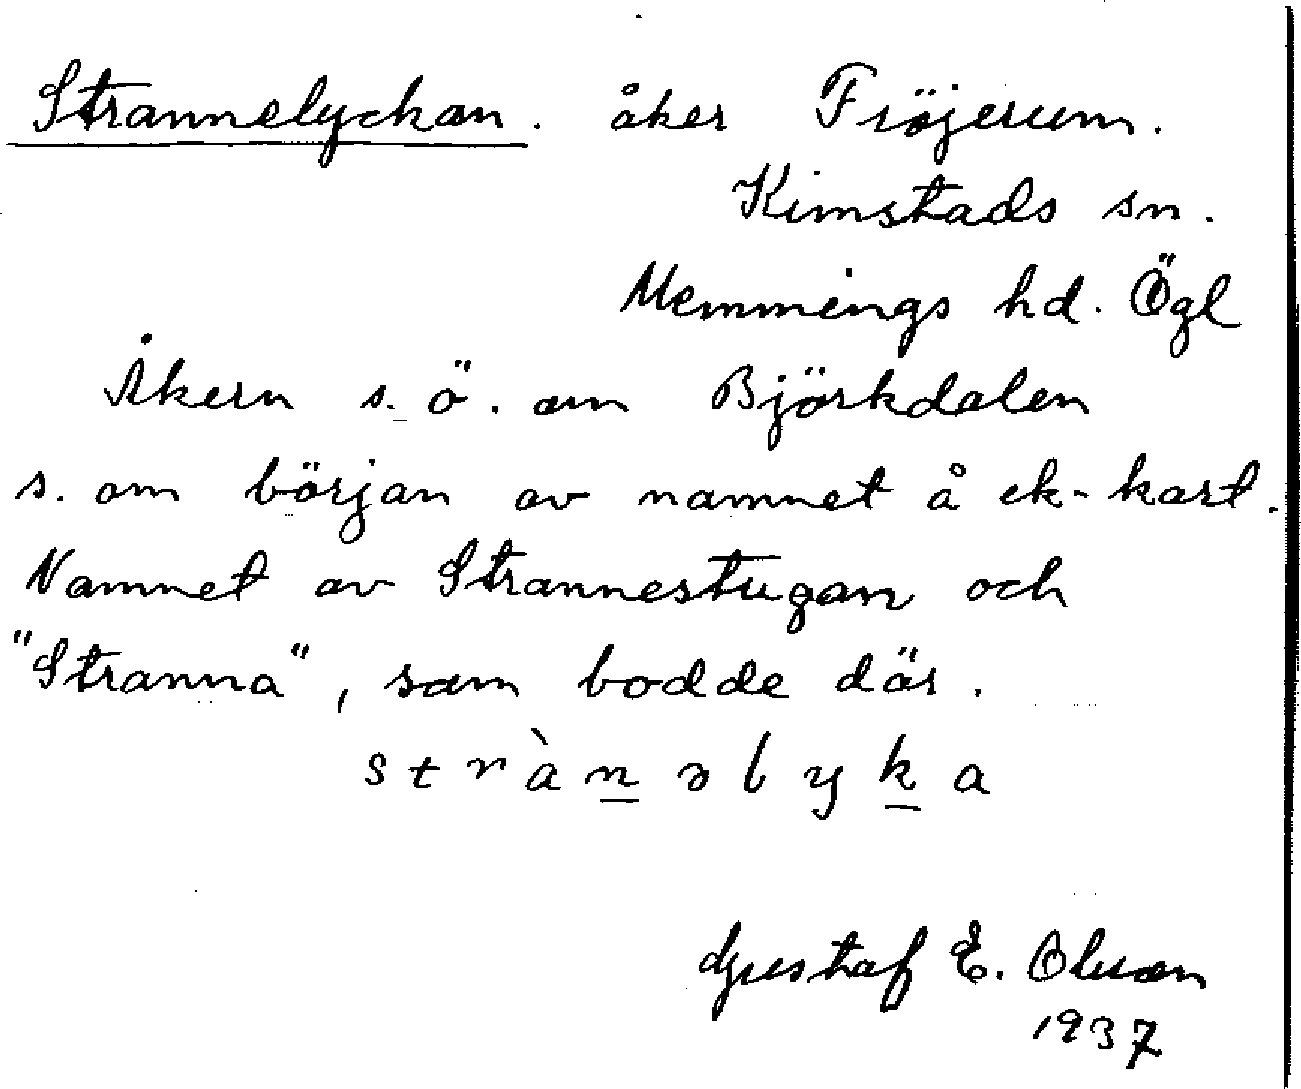 Strannelyckan. åker Fröjerum.
Kimstads sn.
Memmings hd. Ögl
Åkern s. ö. om Björkdalen
s. om början av namnet å ek-kart.
Namnet av Strannestugan och
"Stranna", som bodde där.
s t r à n ə l y k a
Gustaf E. Olsson
1937